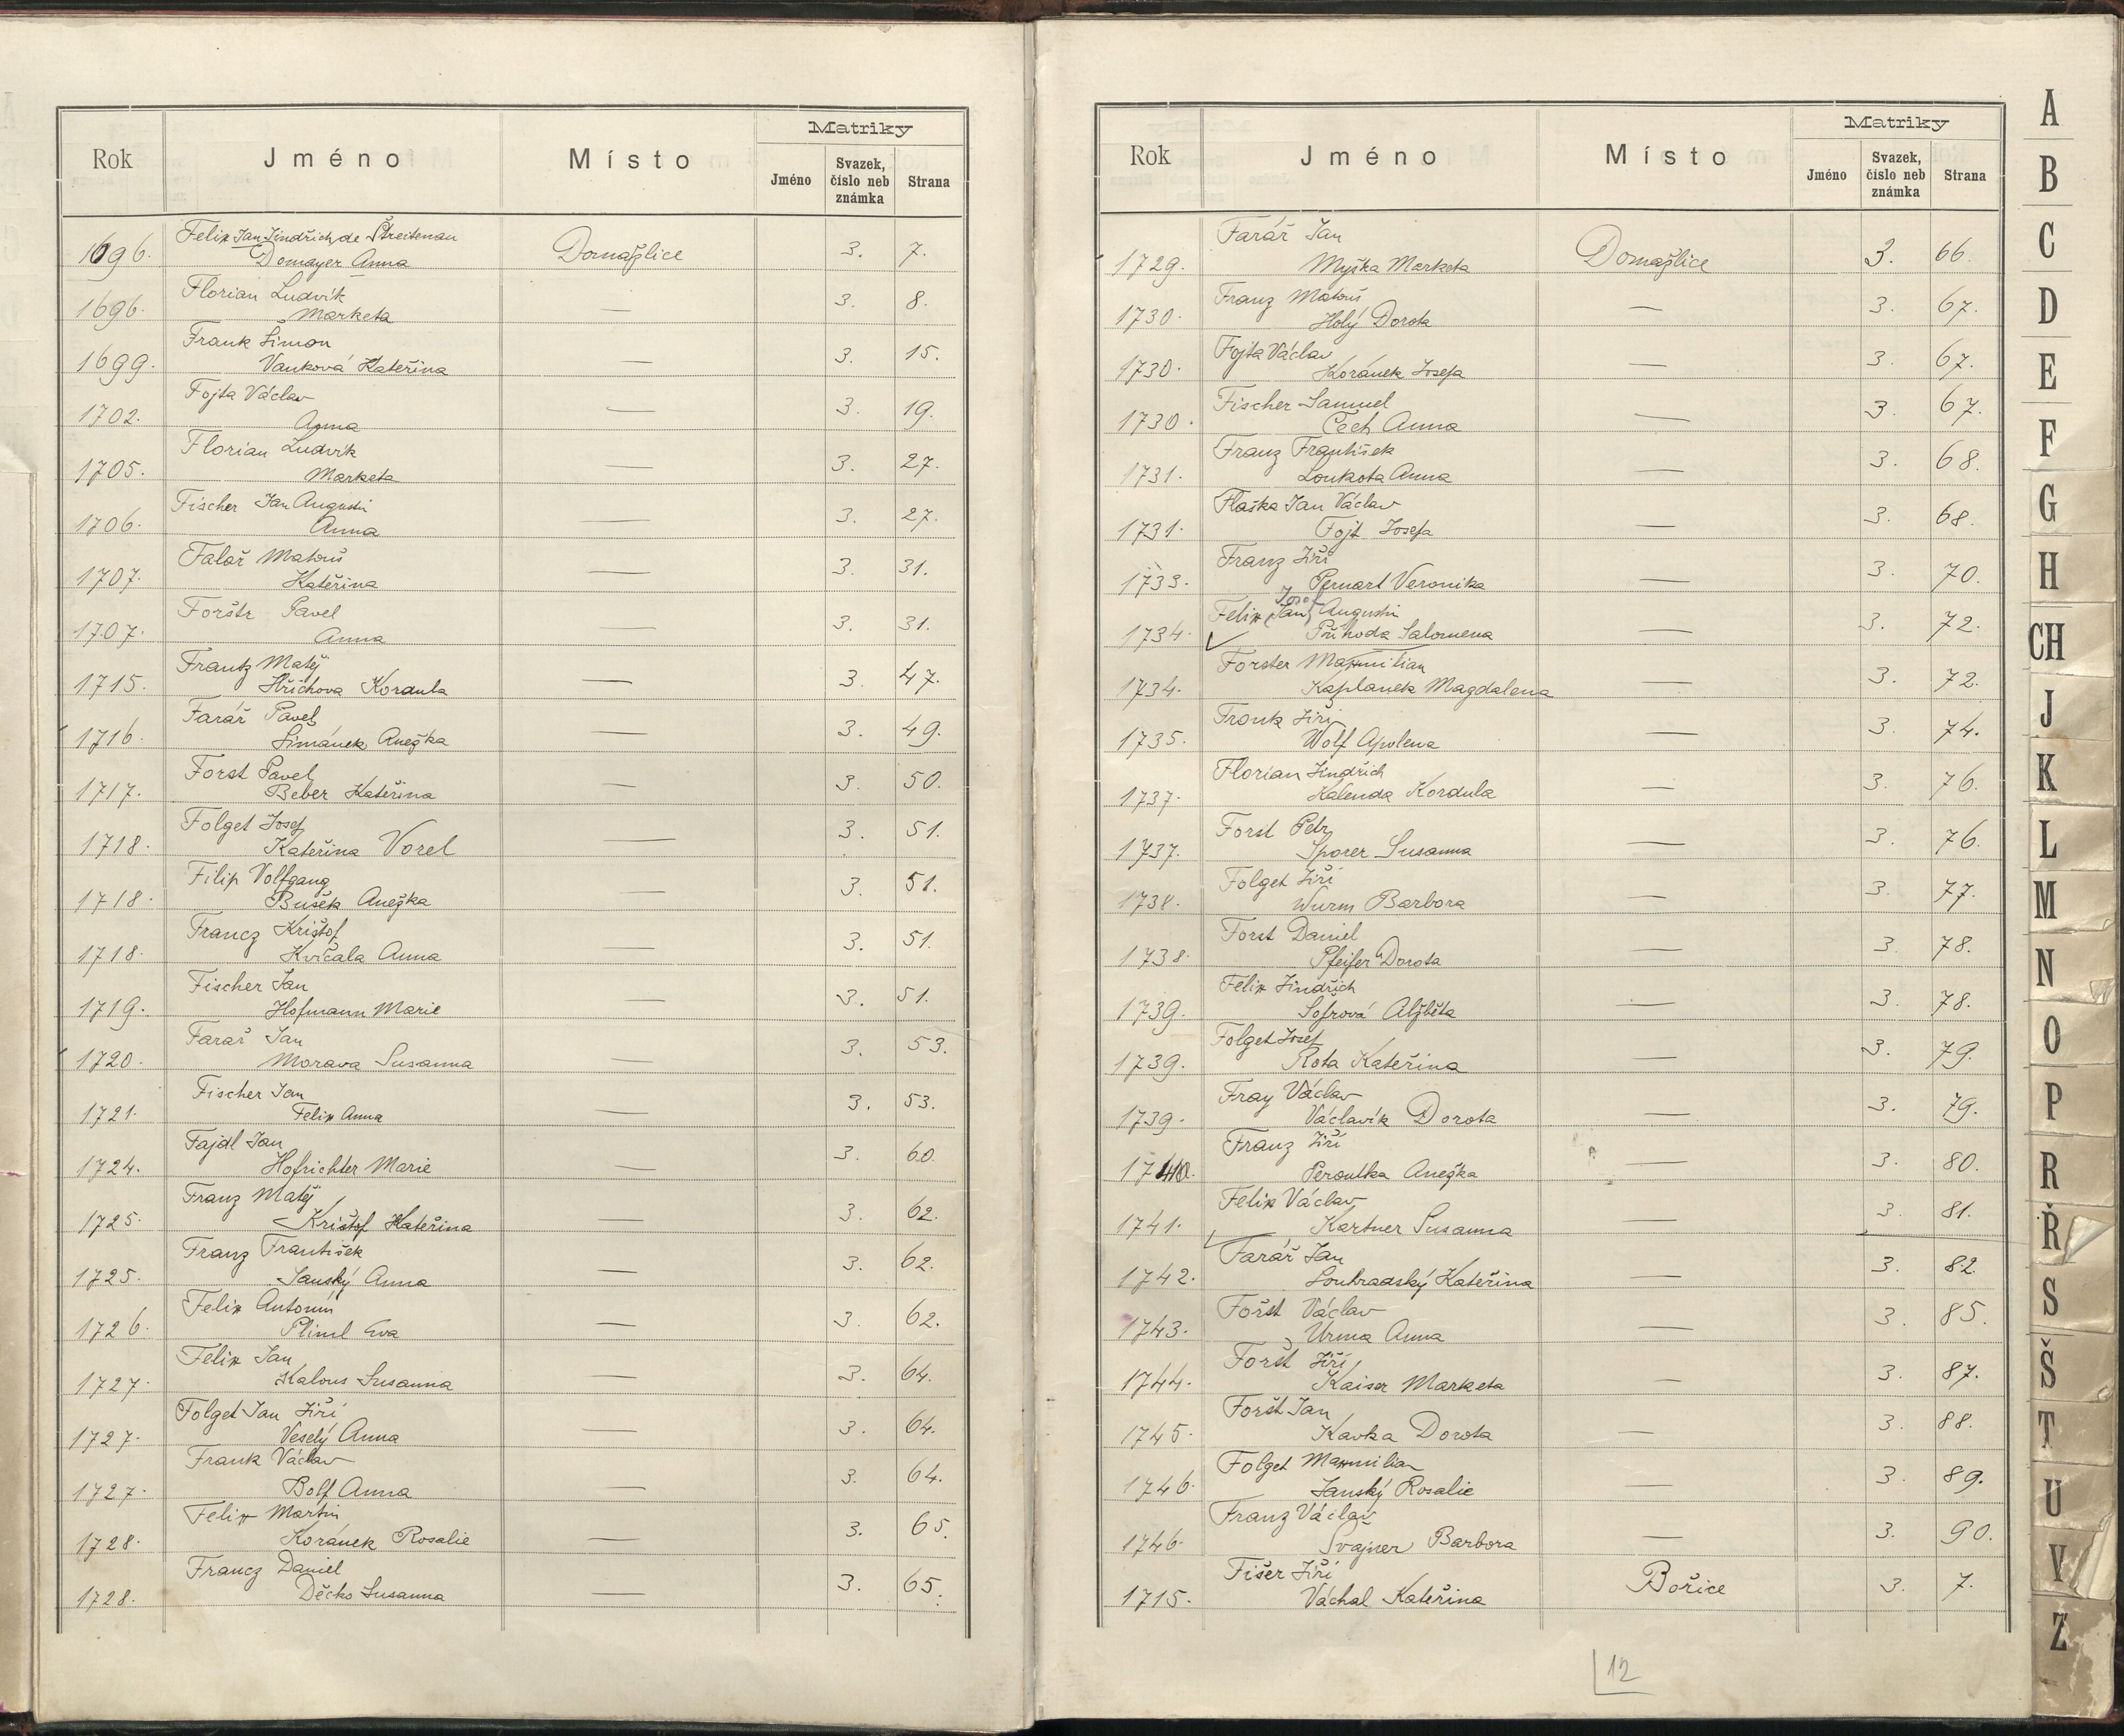 Matriky
Rok Jméno Místo Jméno Svazek, číslo neb známka Strana
Felix Jan Jindřich de Streitenau
1696. Domayer Anna Domažlice 3. 7.
Florian Ludvík
1696. Marketa — 3. 8.
Frank Šimon
1699. Vanková Kateřina — 3. 15.
Fojta Václav
1702. Anna — 3. 19.
Florian Ludvík
1705. Marketa — 3. 27.
Fischer Jan Augustin
1706. Anna — 3. 27.
Falař Matouš
1707. Kateřina — 3. 31.
Forštr Pavel
1707. Anna — 3. 31.
Frantz Matěj
1715. Hřichova Kordula — 3. 47.
Farář Pavel
1716. Šimánek Anežka — 3. 49.
Forst Pavel
1717. Beber Kateřina — 3. 50.
Folget Josef
1718. Kateřina Vorel — 3. 51.
Filip Volfgang
1718. Bušek Anežka — 3. 51.
Francz Krištof
1718. Kvičala Anna — 3. 51.
Fischer Jan
1719. Hofmann Marie — 3. 51.
Farář Jan
1720. Morava Susanna — 3. 53.
Fischer Jan
1721. Felix Anna — 3. 53.
Fajdl Jan
1724. Hofrichter Marie — 3. 60.
Franz Matěj
1725. Krištof Kateřina — 3. 62.
Franz František
1725. Janský Anna — 3. 62.
Felix Antonín
1726. Pliml Eva — 3. 62.
Felix Jan
1727. Kalous Susanna — 3. 64.
Folget Jan Jiří
1727. Veselý Anna — 3. 64.
Frank Václav
1727. Bolf Anna — 3. 64.
Felix Martin
1728. Koránek Rosalie — 3. 65.
Francz Daniel
1728. Děcko Susanna — 3. 65.
Matriky
Rok Jméno Místo Jméno Svazek, číslo neb známka Strana
Farář Jan
1729. Myška Marketa Domažlice 3. 66.
Franz Matouš
1730. Holý Dorota — 3. 67.
Fojta Václav
1730. Koránek Josefa — 3. 67.
Fischer Samuel
1730. Čech Anna — 3. 67.
Franz František
1731. Loukota Anna — 3. 68.
Flaška Jan Václav
1731. Fojt Josefa — 3. 68.
Franz Jiří
1733. Pernart Veronika — 3. 70.
Josef
Felix (Jan) Augustin
1734. Příhoda Salomena — 3. 72.
Forster Maxmilian
1734. Kaplanek Magdalena — 3. 72.
Fronk Jiří
1735. Wolf Apolena — 3. 74.
Florian Jindřich
1737. Kalenda Kordula — 3. 76.
Forst Petr
1737. Sporer Susanna — 3. 76.
Folget Jiří
1738. Wurm Barbora — 3. 77.
Forst Daniel
1738. Pfeifer Dorota — 3. 78.
Felix Jindřich
1739. Šofrová Alžběta — 3. 78.
Folget Josef
1739. Rota Kateřina — 3. 79.
Fray Václav
1739. Václavík Dorota — 3. 79.
Franz Jiří
1740. Peroutka Anežka — 3. 80.
Felix Václav
1741. Kartner Susanna — 3. 81.
Farář Jan
1742. Souhradský Kateřina — 3. 82.
Foršt Václav
1743. Urma Anna — 3. 85.
Foršt Jiří
1744. Kaiser Marketa — 3. 87.
Foršt Jan
1745. Kavka Dorota — 3. 88.
Folget Maxmilian
1746. Janský Rosalie — 3. 89.
Franz Václav
1746. Švajner Barbora — 3. 90.
Fišer Jiří
1715. Váchal Kateřina Bořice 3. 7.
12
A
B
C
D
E
F
G
H
CH
J
K
L
M
N
O
P
R
Ř
S
Š
T
U
V
Z